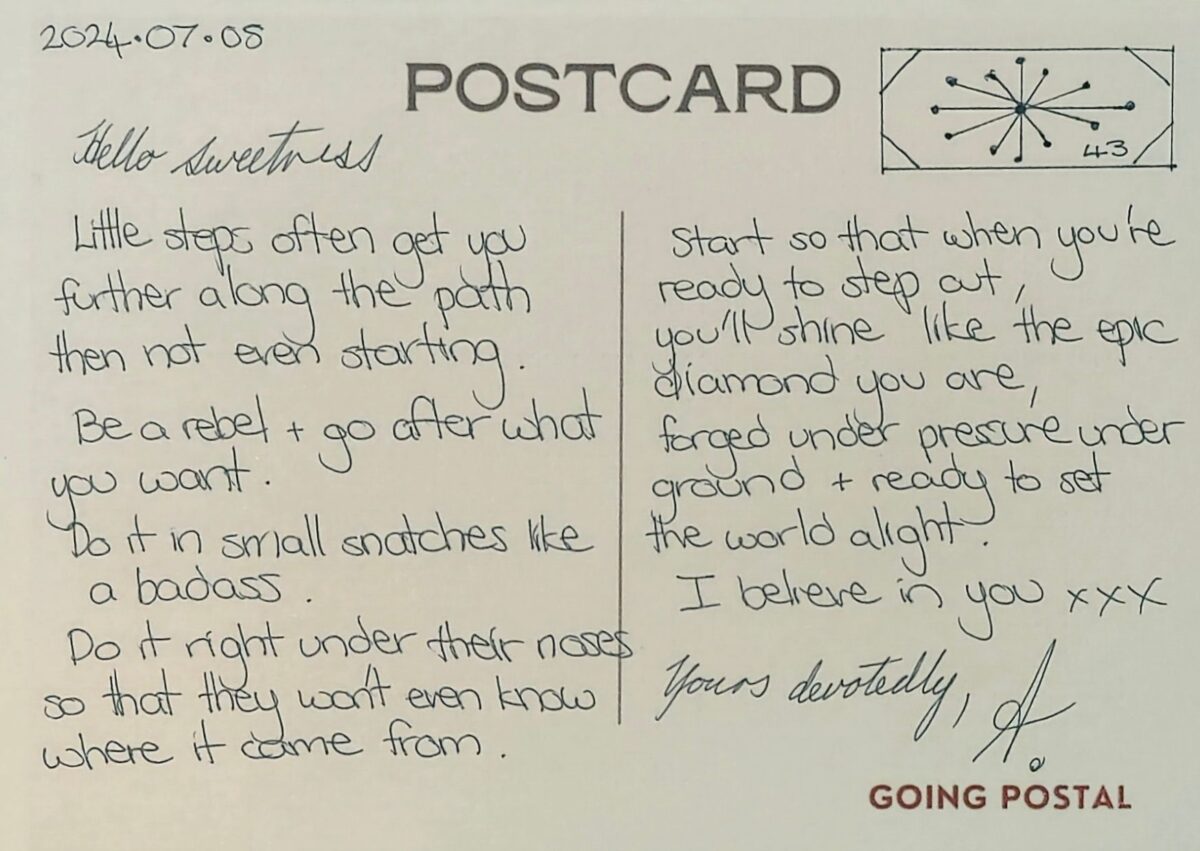 2024.07.08
POSTCARD
43
Hello sweetness
Little steps often get you
further along the path
then not even starting.
Be a rebel + go after what
you want.
Do it in small snatches like
a badass.
Do it right under their noses
so that they won't even know
where it came from.
Start so that when you're
ready to step out,
you'll shine like the epic
diamond you are,
forged under pressure under
ground + ready to set
the world alight.
I believe in you xxx
Yours devotedly, A.
GOING POSTAL